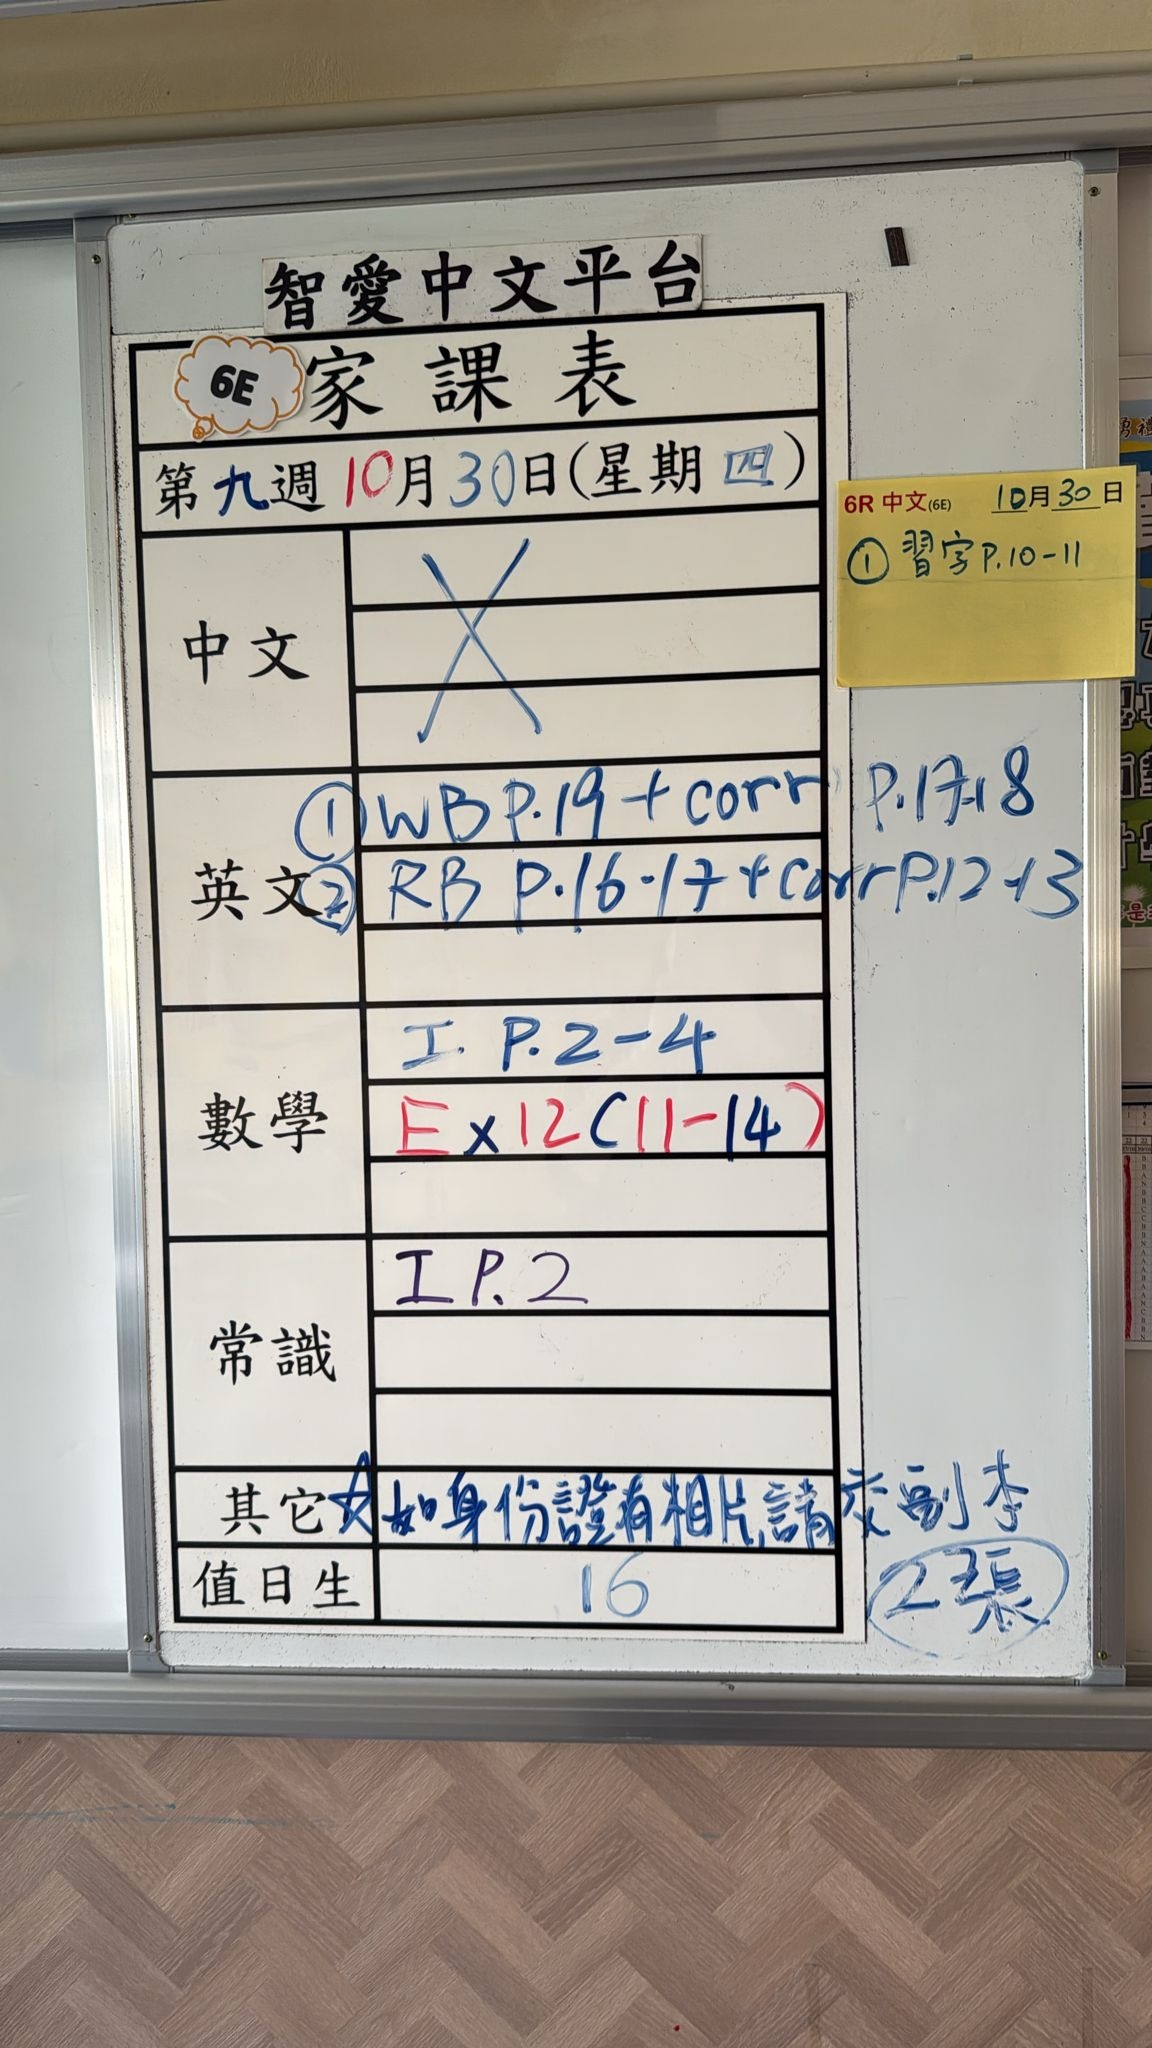 智愛中文平台
6E 家課表
第九週10月30日(星期四)
6R 中文(6E) 10月30日
① 習字P.10-11
中文
英文
① WB P.19 + corr P.17-18
② RB P.16-17 + corr P.12-13
數學
I. P.2-4
Ex12(11-14)
常識
I P.2
其它 ☆如身份證有相片,請交副本
2張
值日生 16